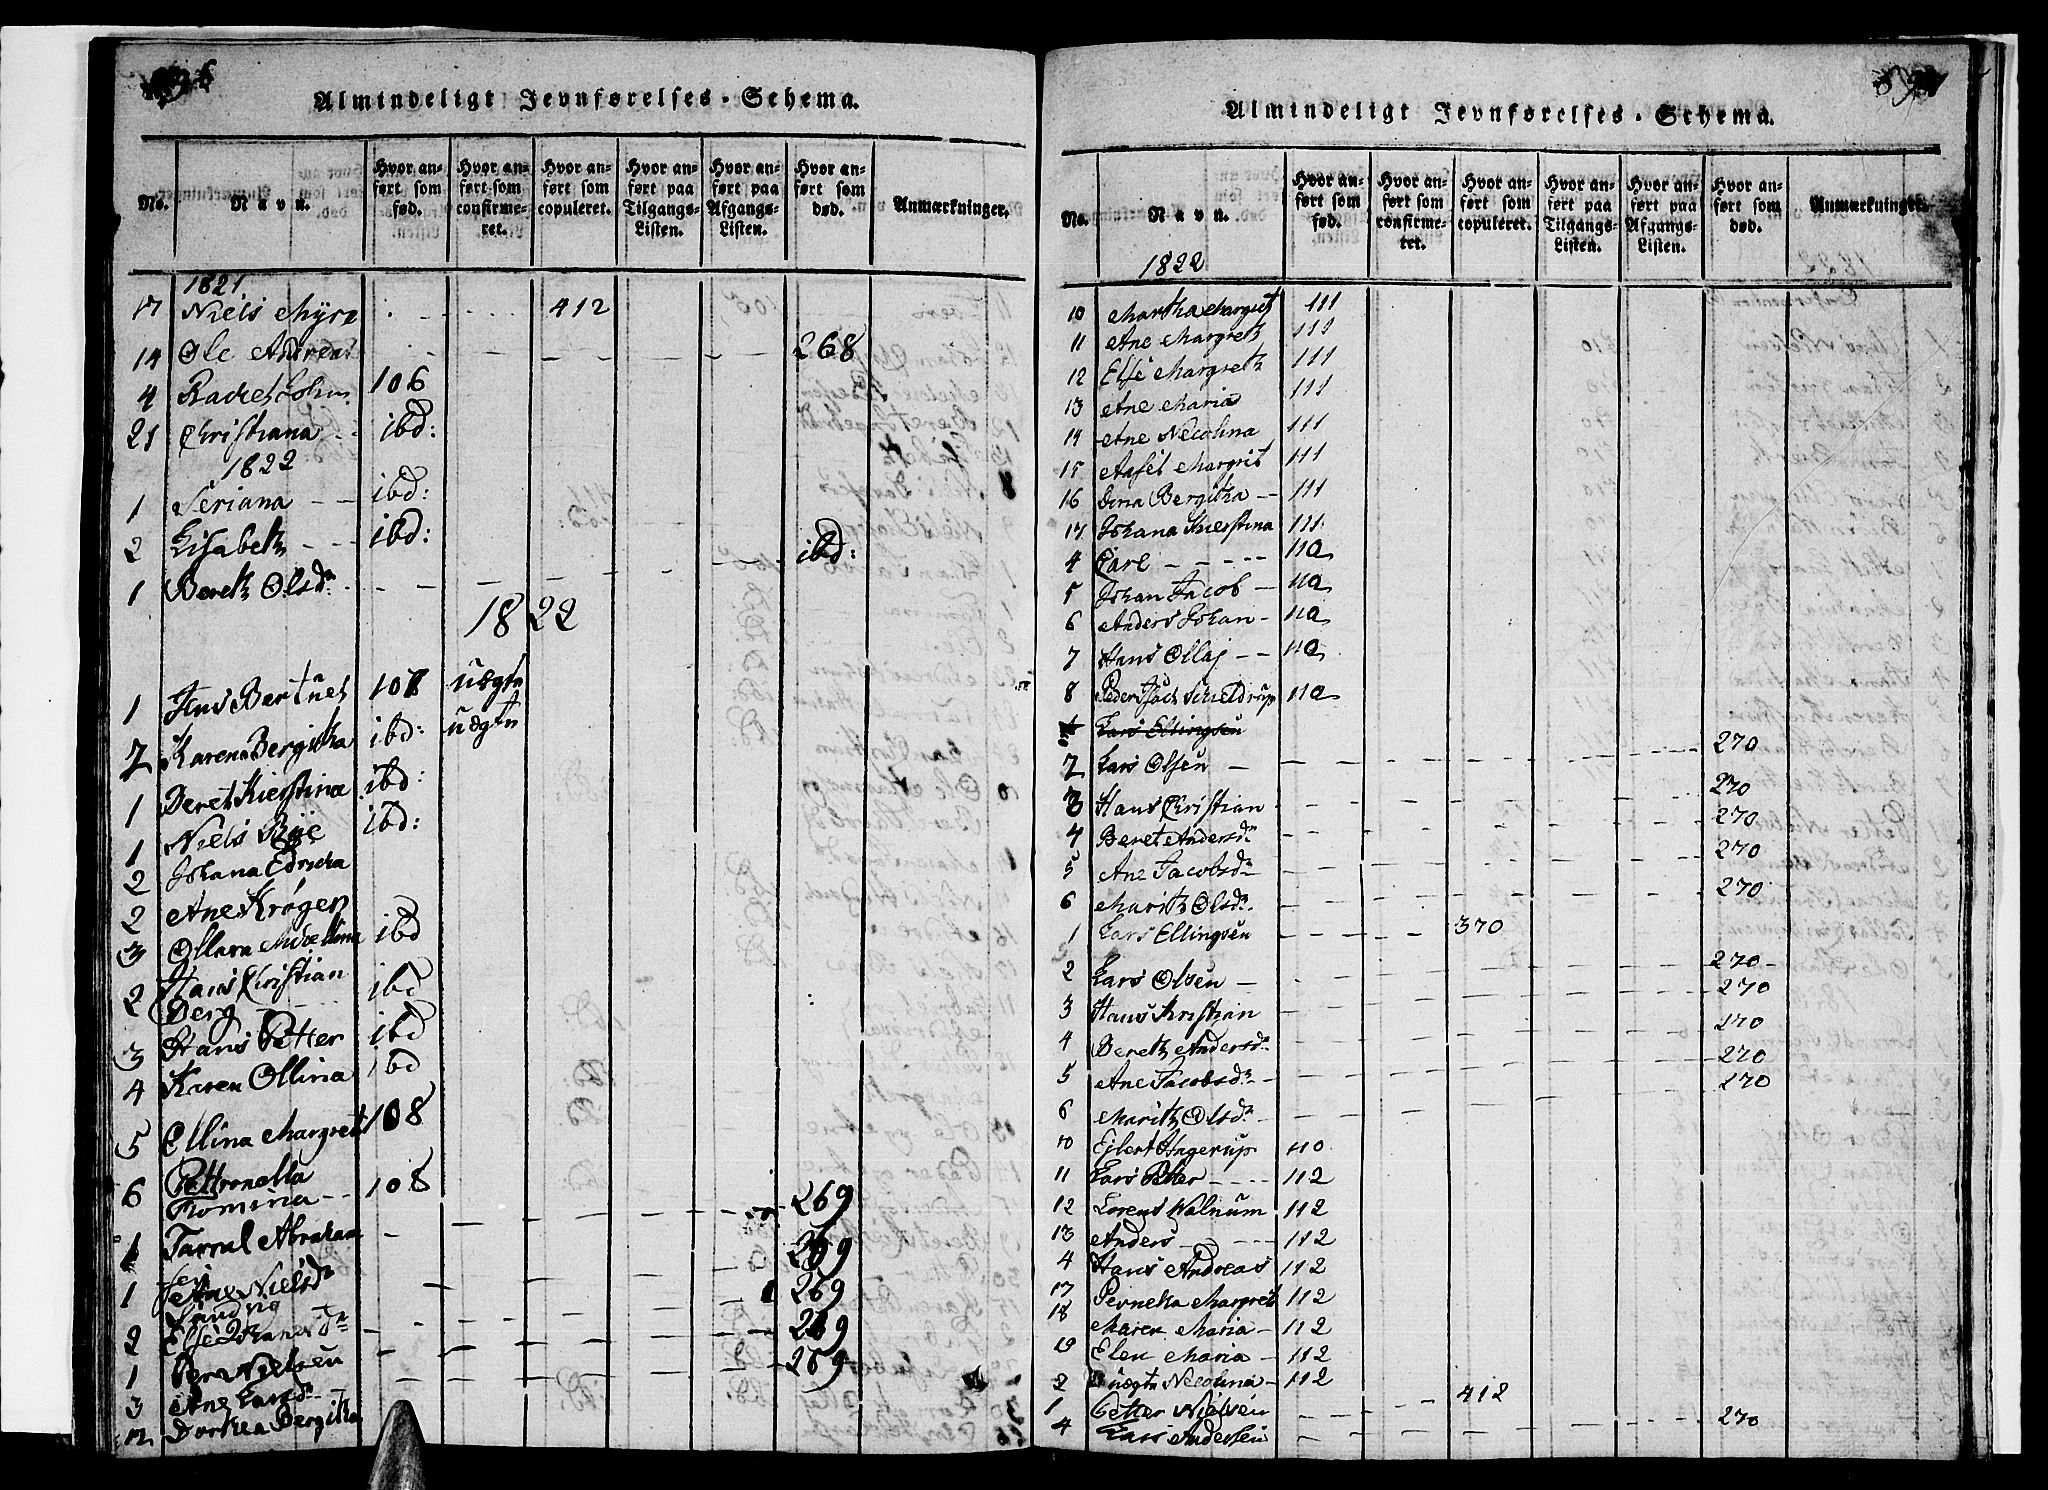 Almindeligt Jevnførelses-Schema.
No.
Navn.
Hvor anført som fød.
Hvor anført som confirmeret.
Hvor anført som copuleret.
Hvor anført paa Tilgangs-Listen.
Hvor anført paa Afgangs-Listen.
Hvor anført som død.
Anmærkninger.
1821
17 Niels Myre 412
14 Ole Andreas 268
4 Rachel 106
21 Christiana ibd:
1822
1 Seriana ibd:
2 Lisabeth ibd:
1 Bereth Olsdr ibd:
1822
1 Jens 108 uægte
2 Karena Bergitha ibd: uægte
1 Beret Kierstina ibd:
1 Niels ibd:
2 Johana
2 Ane Krøger
3 Ollara ibd
2 Hans Christian ibd
Berg
3 Hans Petter ibd
4 Karen Ollina ibd
5 Ellina Margret 108
6 Pettronella 108
Romina
1 Abraham 269
sen
1 Ane Nielsdr 269
2 Else 269
1 Per Nielsen 269
3 Ane Larsdr 269
12 Dorthea Bergitha
Almindeligt Jevnførelses-Schema.
No.
Navn.
Hvor anført som fød.
Hvor anført som confirmeret.
Hvor anført som copuleret.
Hvor anført paa Tilgangs-Listen.
Hvor anført paa Afgangs-Listen.
Hvor anført som død.
Anmærkninger.
1822
10 Martha Margret 111
11 Ane Margreth 111
12 Else Margreth 111
13 Ane Maria 111
14 Ane Necolina 111
15 Margrit 111
16 Dina Bergitha 111
17 Johana Kierstina 111
4 Carl 110
5 Johan Jacob 110
6 Anders Johan 110
7 Hans Ollaj 110
8 Peder Schieldrup 110
Lars Ellingsen
2 Lars Olsen 270
3 Hans Christian 270
4 Beret Andersdr 270
5 Ane Jacobsdr 270
6 Marith Olsdr 270
1 Lars Ellingsen 370
2 Lars Olsen 270
3 Hans Kristian 270
4 Bereth Andersdr 270
5 Ane Jacobsdr 270
6 Marith Olsdr 270
10 Ejlert Hagerup 110
11 Lars Petter 112
12 Lorens Walnum 112
13 Anders 112
4 Hans Andreas 112
17 Perneka Margret 112
18 Maren Maria 112
19 Elen Maria 112
2 uægte Necolina 112
1 Petter Nielsen 412
4 Lars Andersen 270